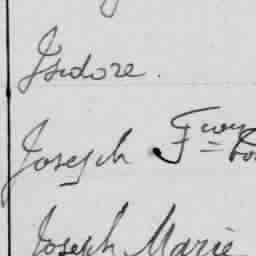 Isidore.
Joseph
Joseph Marie